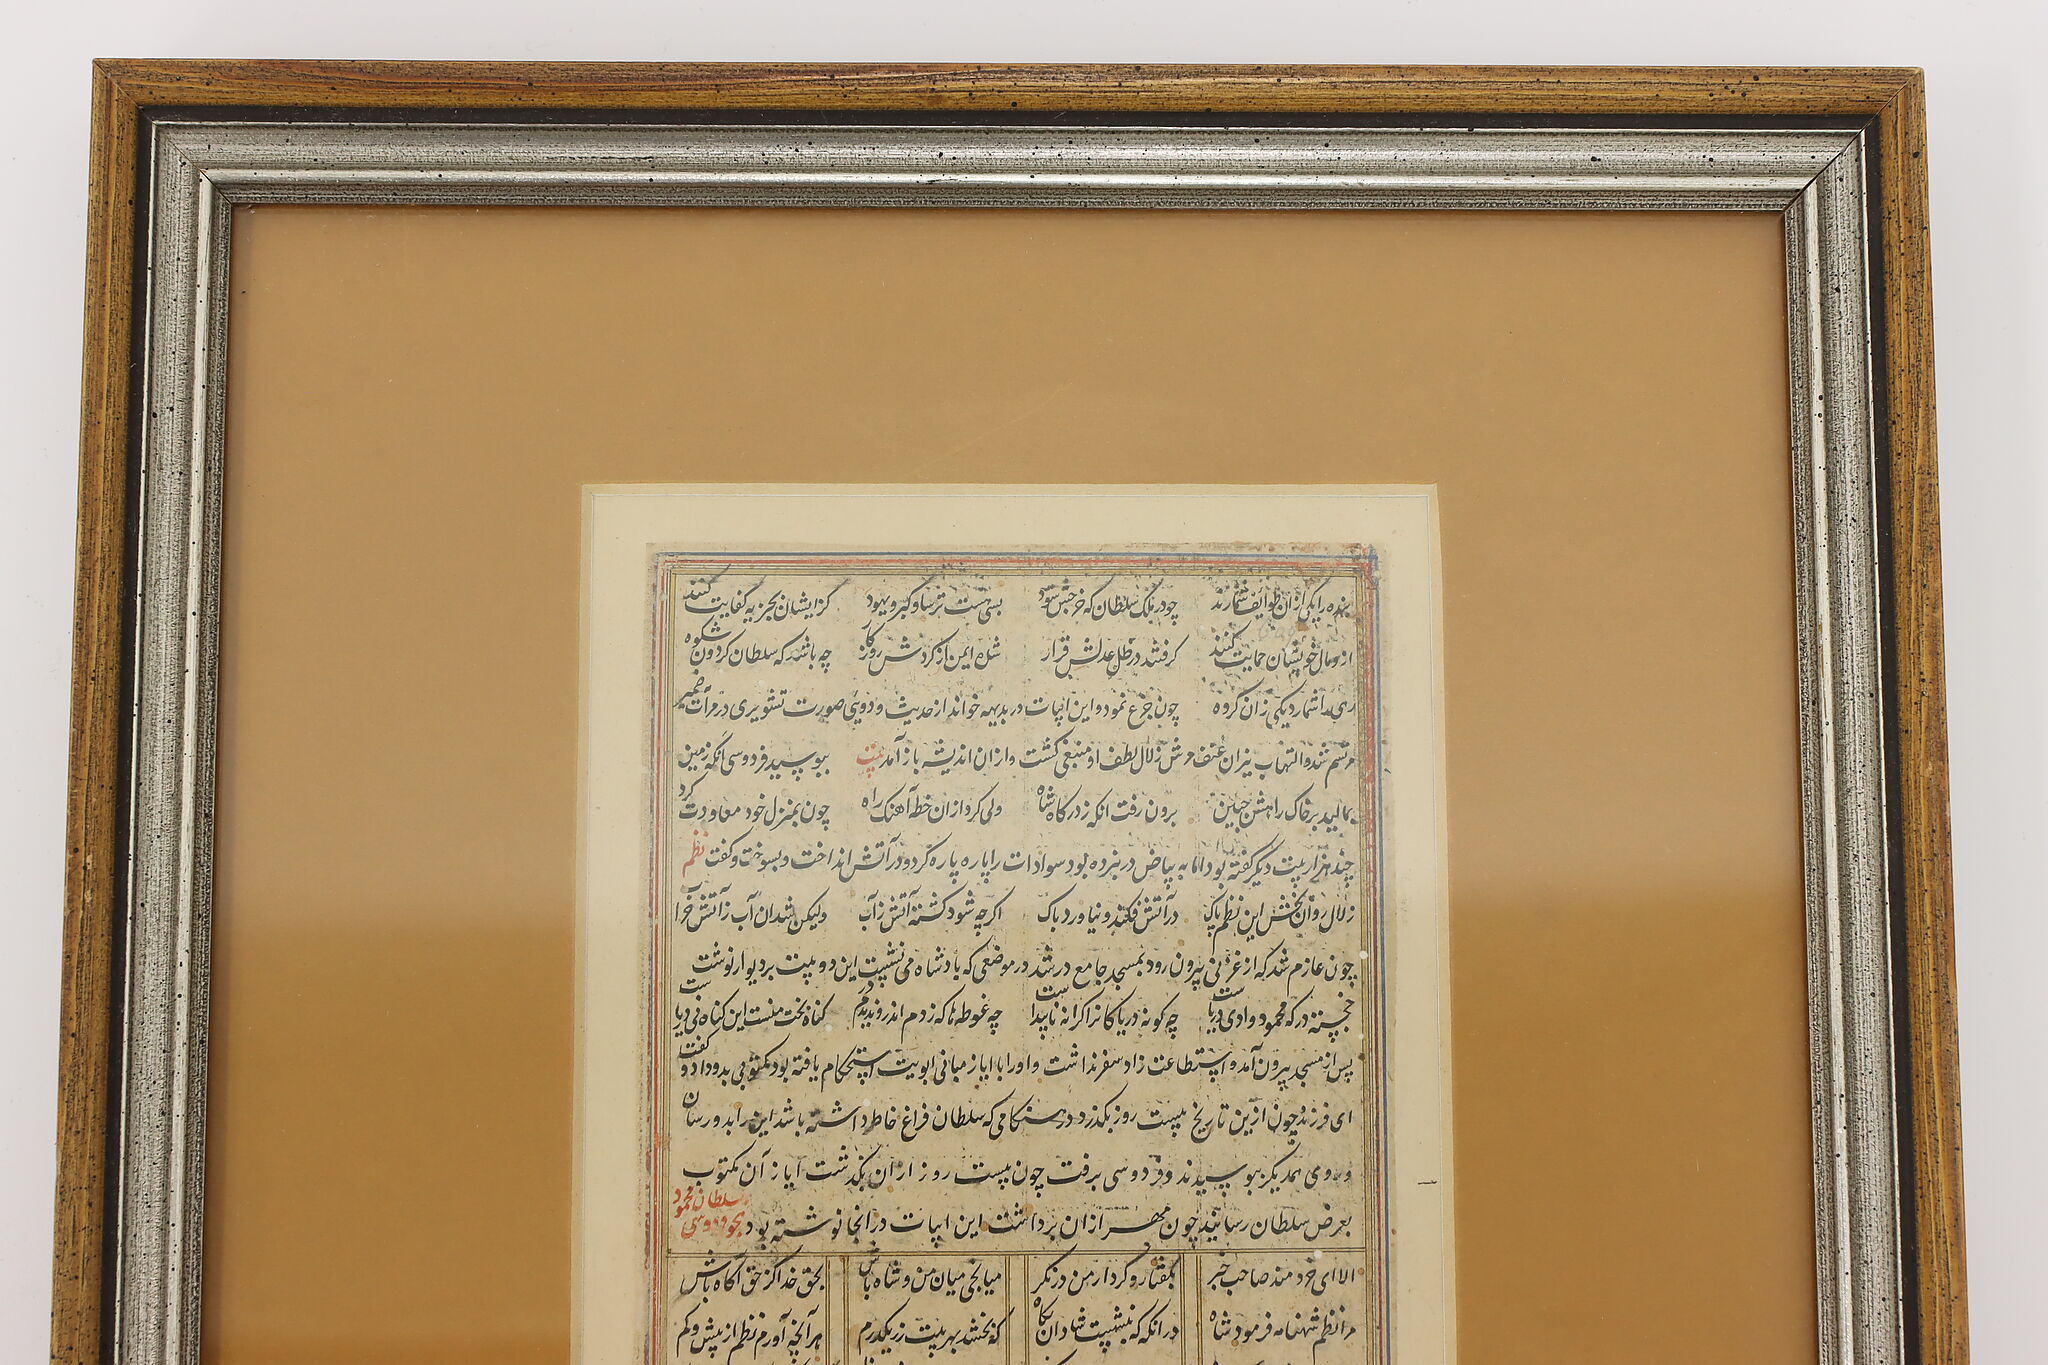 بنده را یکی از ان طوایف شمارند چو در ملک سلطان که خرجش شود بسی هست ترسا و کبر و یهود کز ایشان بجزیه کفایت کنند
از و مال خویشان حمایت کنند کرفتند در ظل عدلش قرار شده ایمن از کردش روزکار چه باشد که سلطان کردون شکوه
رهی را شمارد یکی زان کروه چون جزع نمود و این ابیات در بدیهه خواند از حدیث و دوبی صورت تشویری در مرآت ضمیر
مرتسم شد و التهاب نیران عنف مرش زلال لطف او منبغی کشت و از ان اندیشه باز آمد بیت ببوسید فردوسی انکه زمین
بمالید بر خاک راهش جبین برون رفت انکه ز درکاه شاه ولی کرد از ان خطه آهنک راه چون بمنزل خود معاودت کرد
چند هزار بیت دیکر کفته بود اما به بیاض در نبرده بود سوادات را پاره پاره کرد و در آتش انداخت و بسوخت و کفت نظم
زلال روان بخش این نظم پاک در آتش فکند و نیاورد باک اکر چه شود کشته آتش ز آب ولیکن شد ان آب ز آتش خراب
چون عازم شد که از غزنی بیرون رود بمسجد جامع در شد در موضعی که پادشاه می نشست این دو بیت بر دیوار نوشت
خجسته درکه محمود وادی دریاست چه کونه دریا کانرا کرانه ناپیداست چه غوطها که زدم اندرو ندیدم در کناه بخت منست این کناه نی دریاست
پس از مسجد بیرون آمد و استطاعت زاد سفر نداشت و او را با ایاز مبانی ابویت استحکام یافته بود مکتوبی بدو داد و کفت
ای فرزند چون ازین تاریخ بیست روز بکذرد در هنکامی که سلطان فراغ خاطر داشته باشد این را بدو رسان
و روی همدیکر ببوسیدند و فردوسی برفت چون بیست روز از ان بکذشت ایاز آن مکتوب
بعرض سلطان رسانید چون مهر از ان برداشت این ابیات در انجا نوشته بود بجو فردوسی سلطان محمود
الا ای خردمند صاحب خبر بکفتار و کردار من در نکر میانجی میان من و شاه باش بحق خدا کز حق آکاه باش
مرا نظم شهنامه فرمود شاه در انکه که بنشست شادان بکاه که بخشد بهر بیت زر یکدرم هر آنچه آورم نظم از بیش و کم